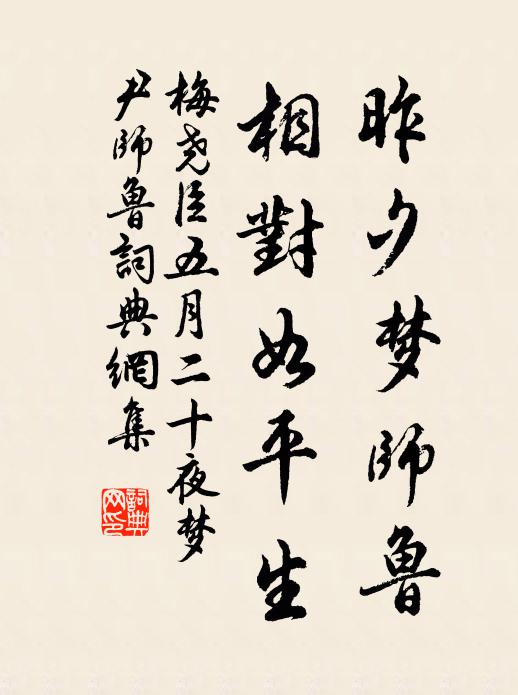 昨夕梦师鲁
相對如平生
梅尧臣五月二十夜梦
尹师鲁詞典網集
詞典网印